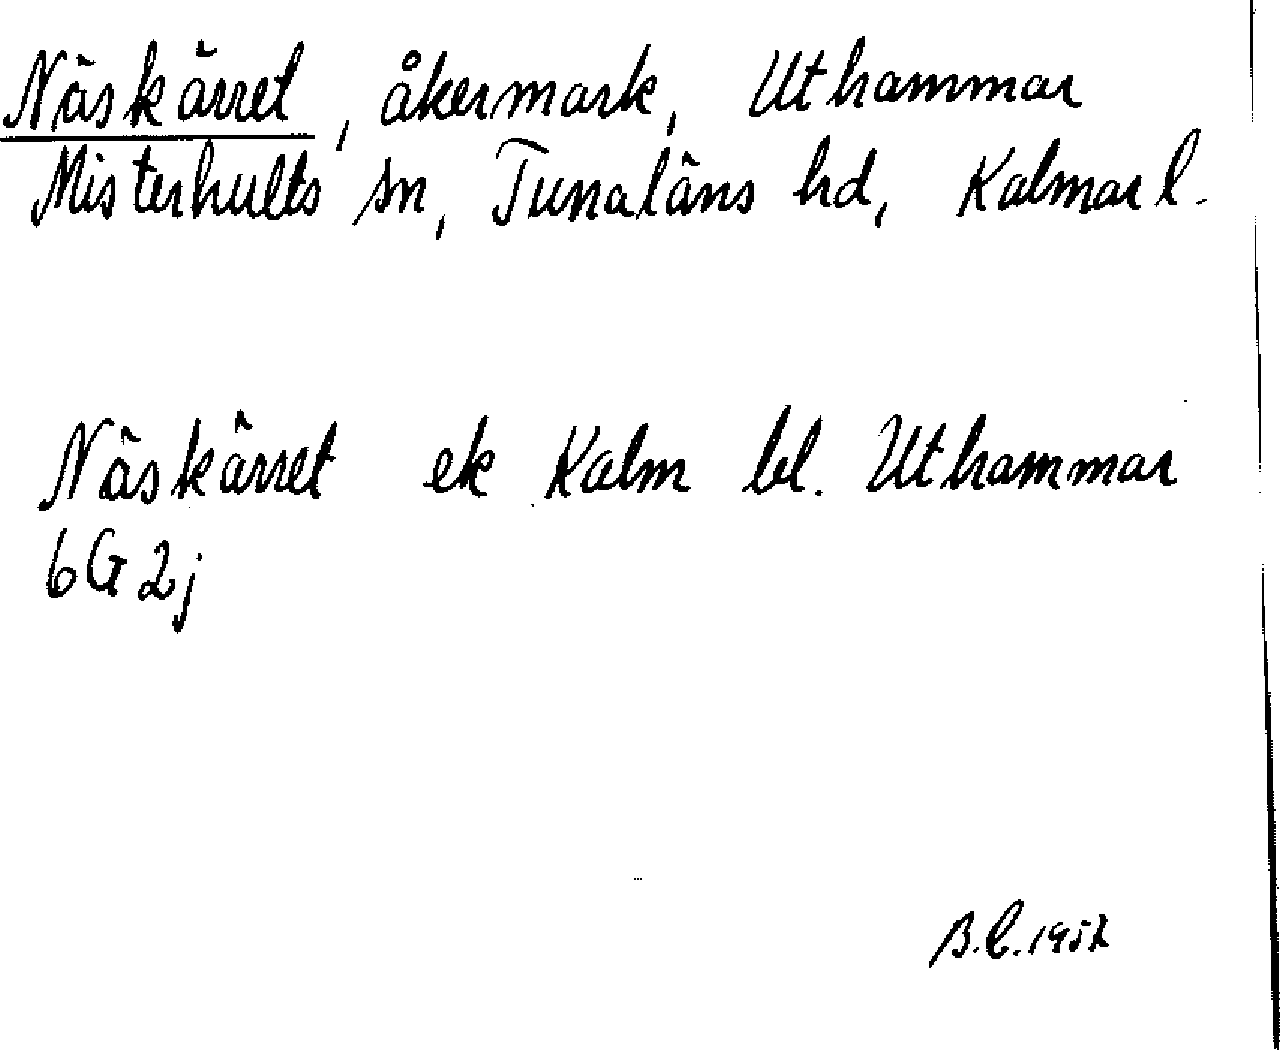 Näskärret, åkermark, Uthammar
Misterhults sn, Tunaläns hd, Kalmar l.
Näskärret ek Kalm bl. Uthammar
6G 2j
B.C. 1957